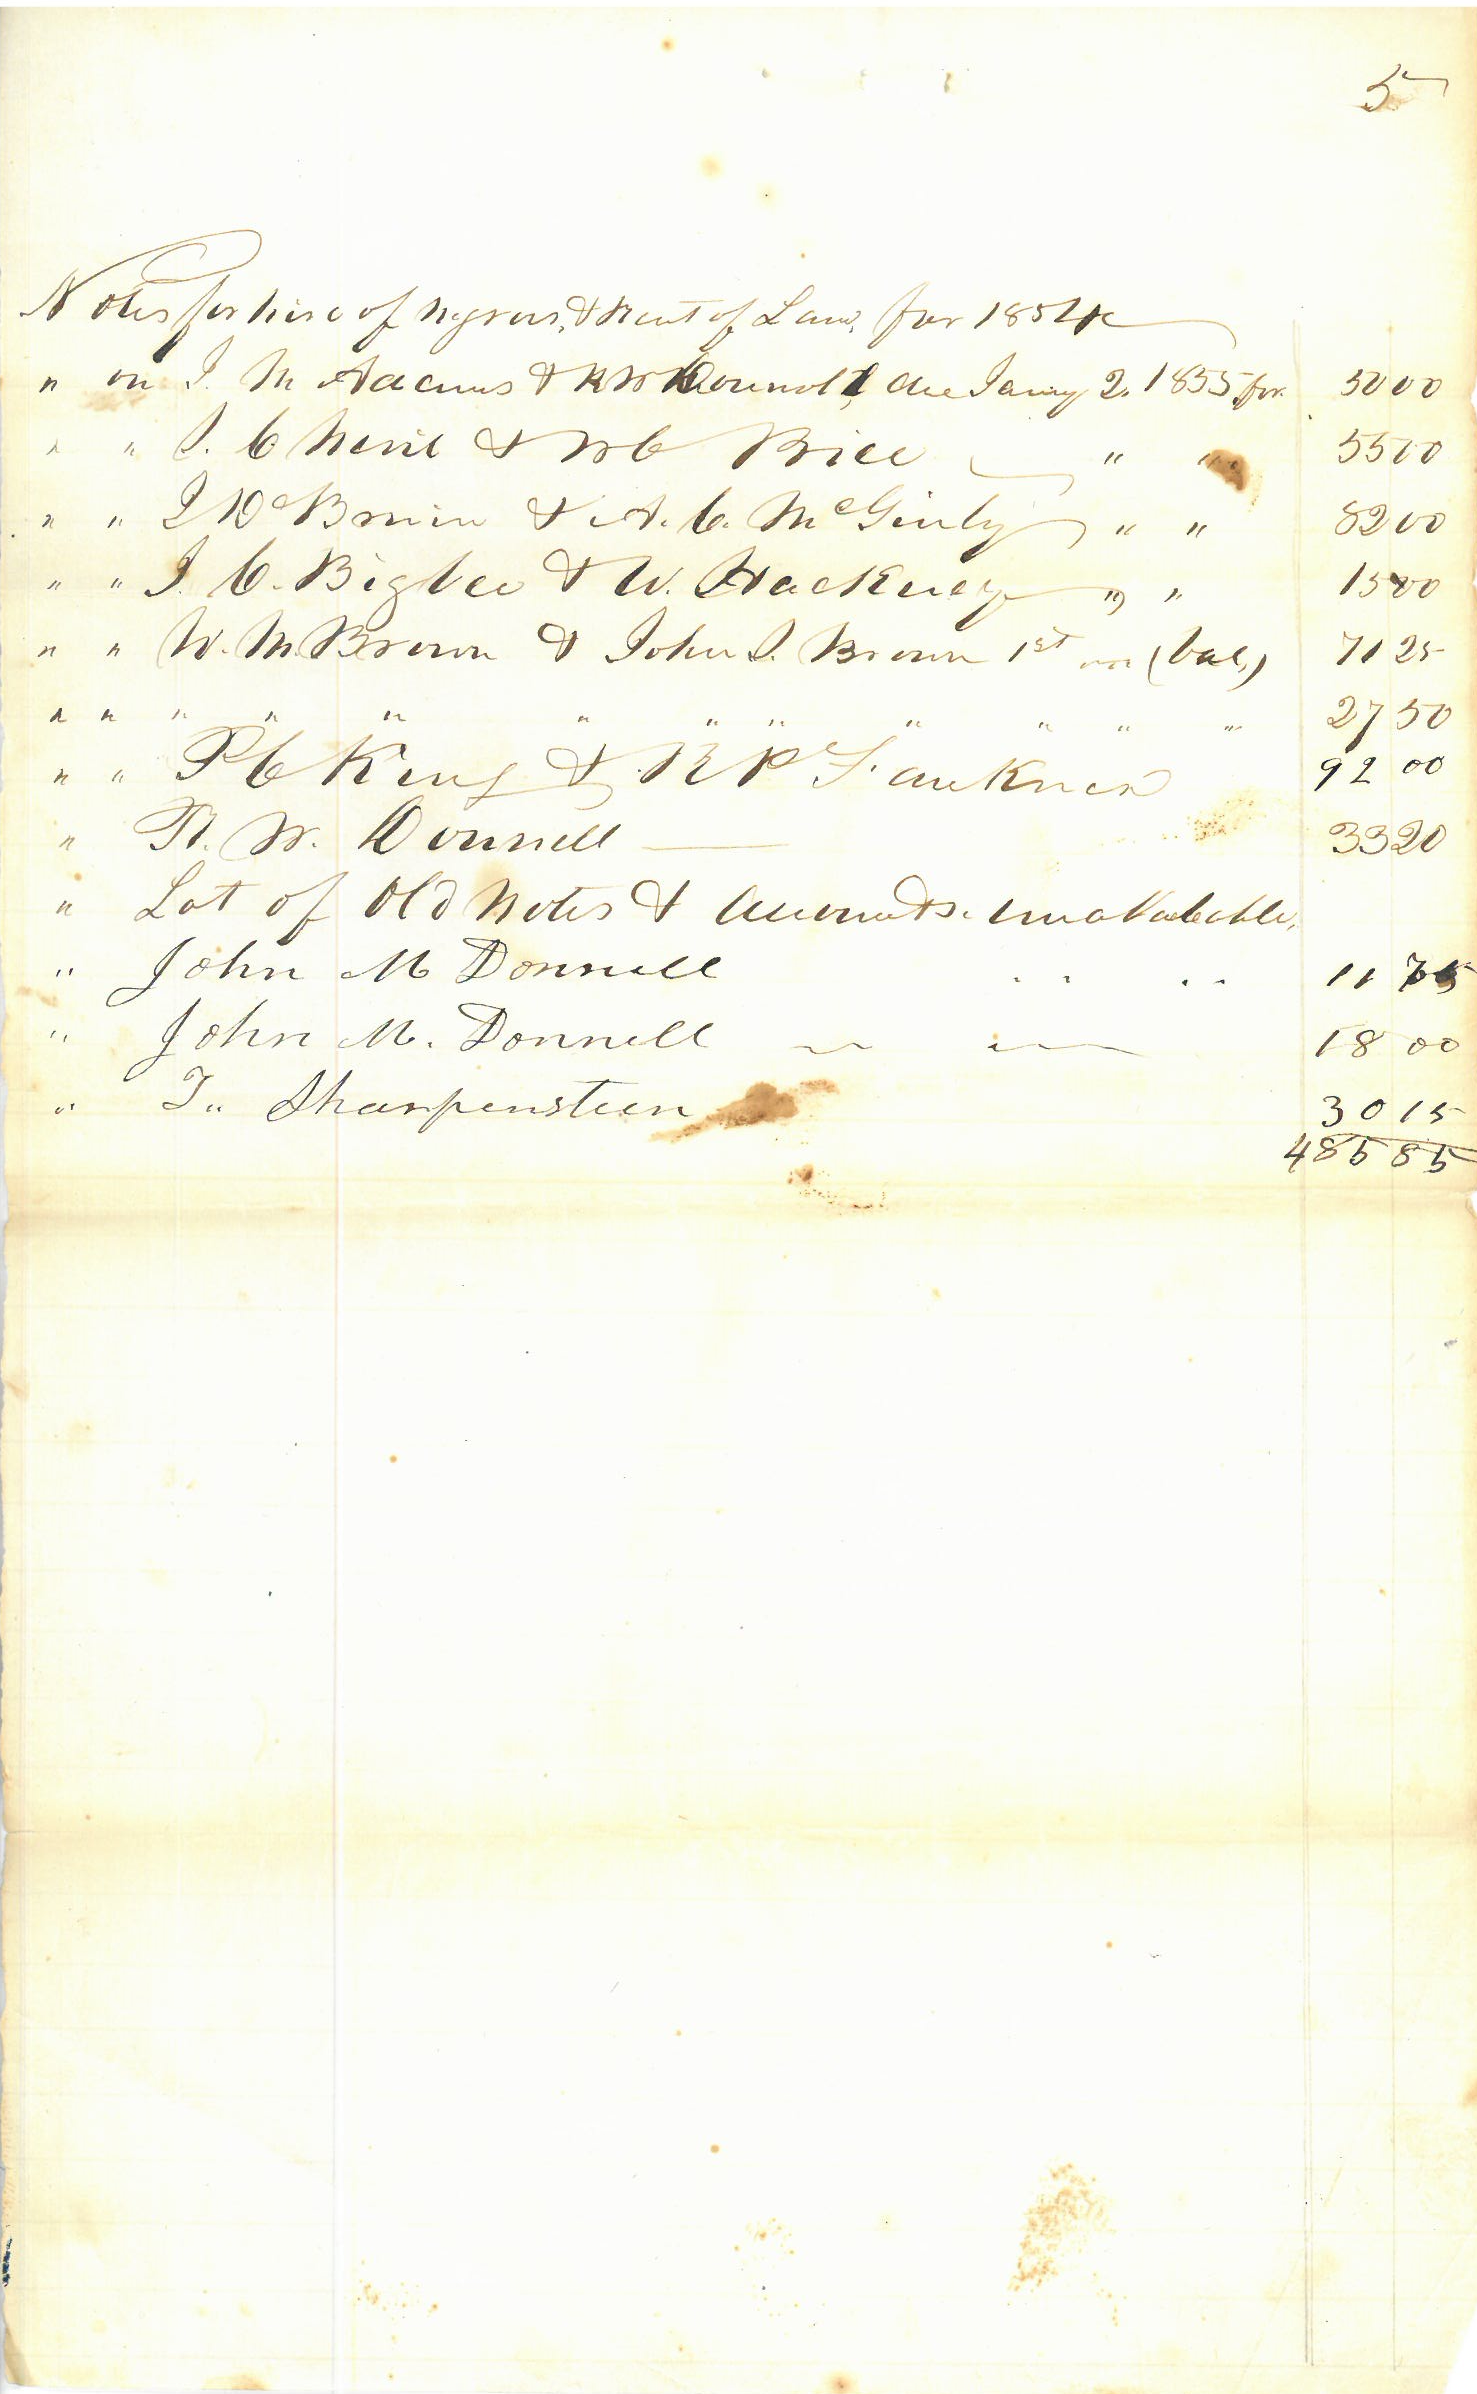 5
Notes for hire of negroes, & Rent of Land, for 1854
" on J. M Adams & R W Donnell, due Jany 2. 1855 for 50 00
" " J. C Nevil & W C Price " " 55 00
" " J D Brown & A. C. McGinty " " 82 00
" " J. C. Bigbee & W. Hackney " " 15 00
" " W. M. Brown & John J. Brown 1st (bal,) 71 25
" " " " " " " " " " " " 27 50
" " P C King & R P Faulkner 92 00
" R. W. Donnell 33 20
" Lot of Old Notes & Accounts.
" John M Donnell " " 11 75
" John M. Donnell 18 00
" T. Sharpensteen 30 15
485 85